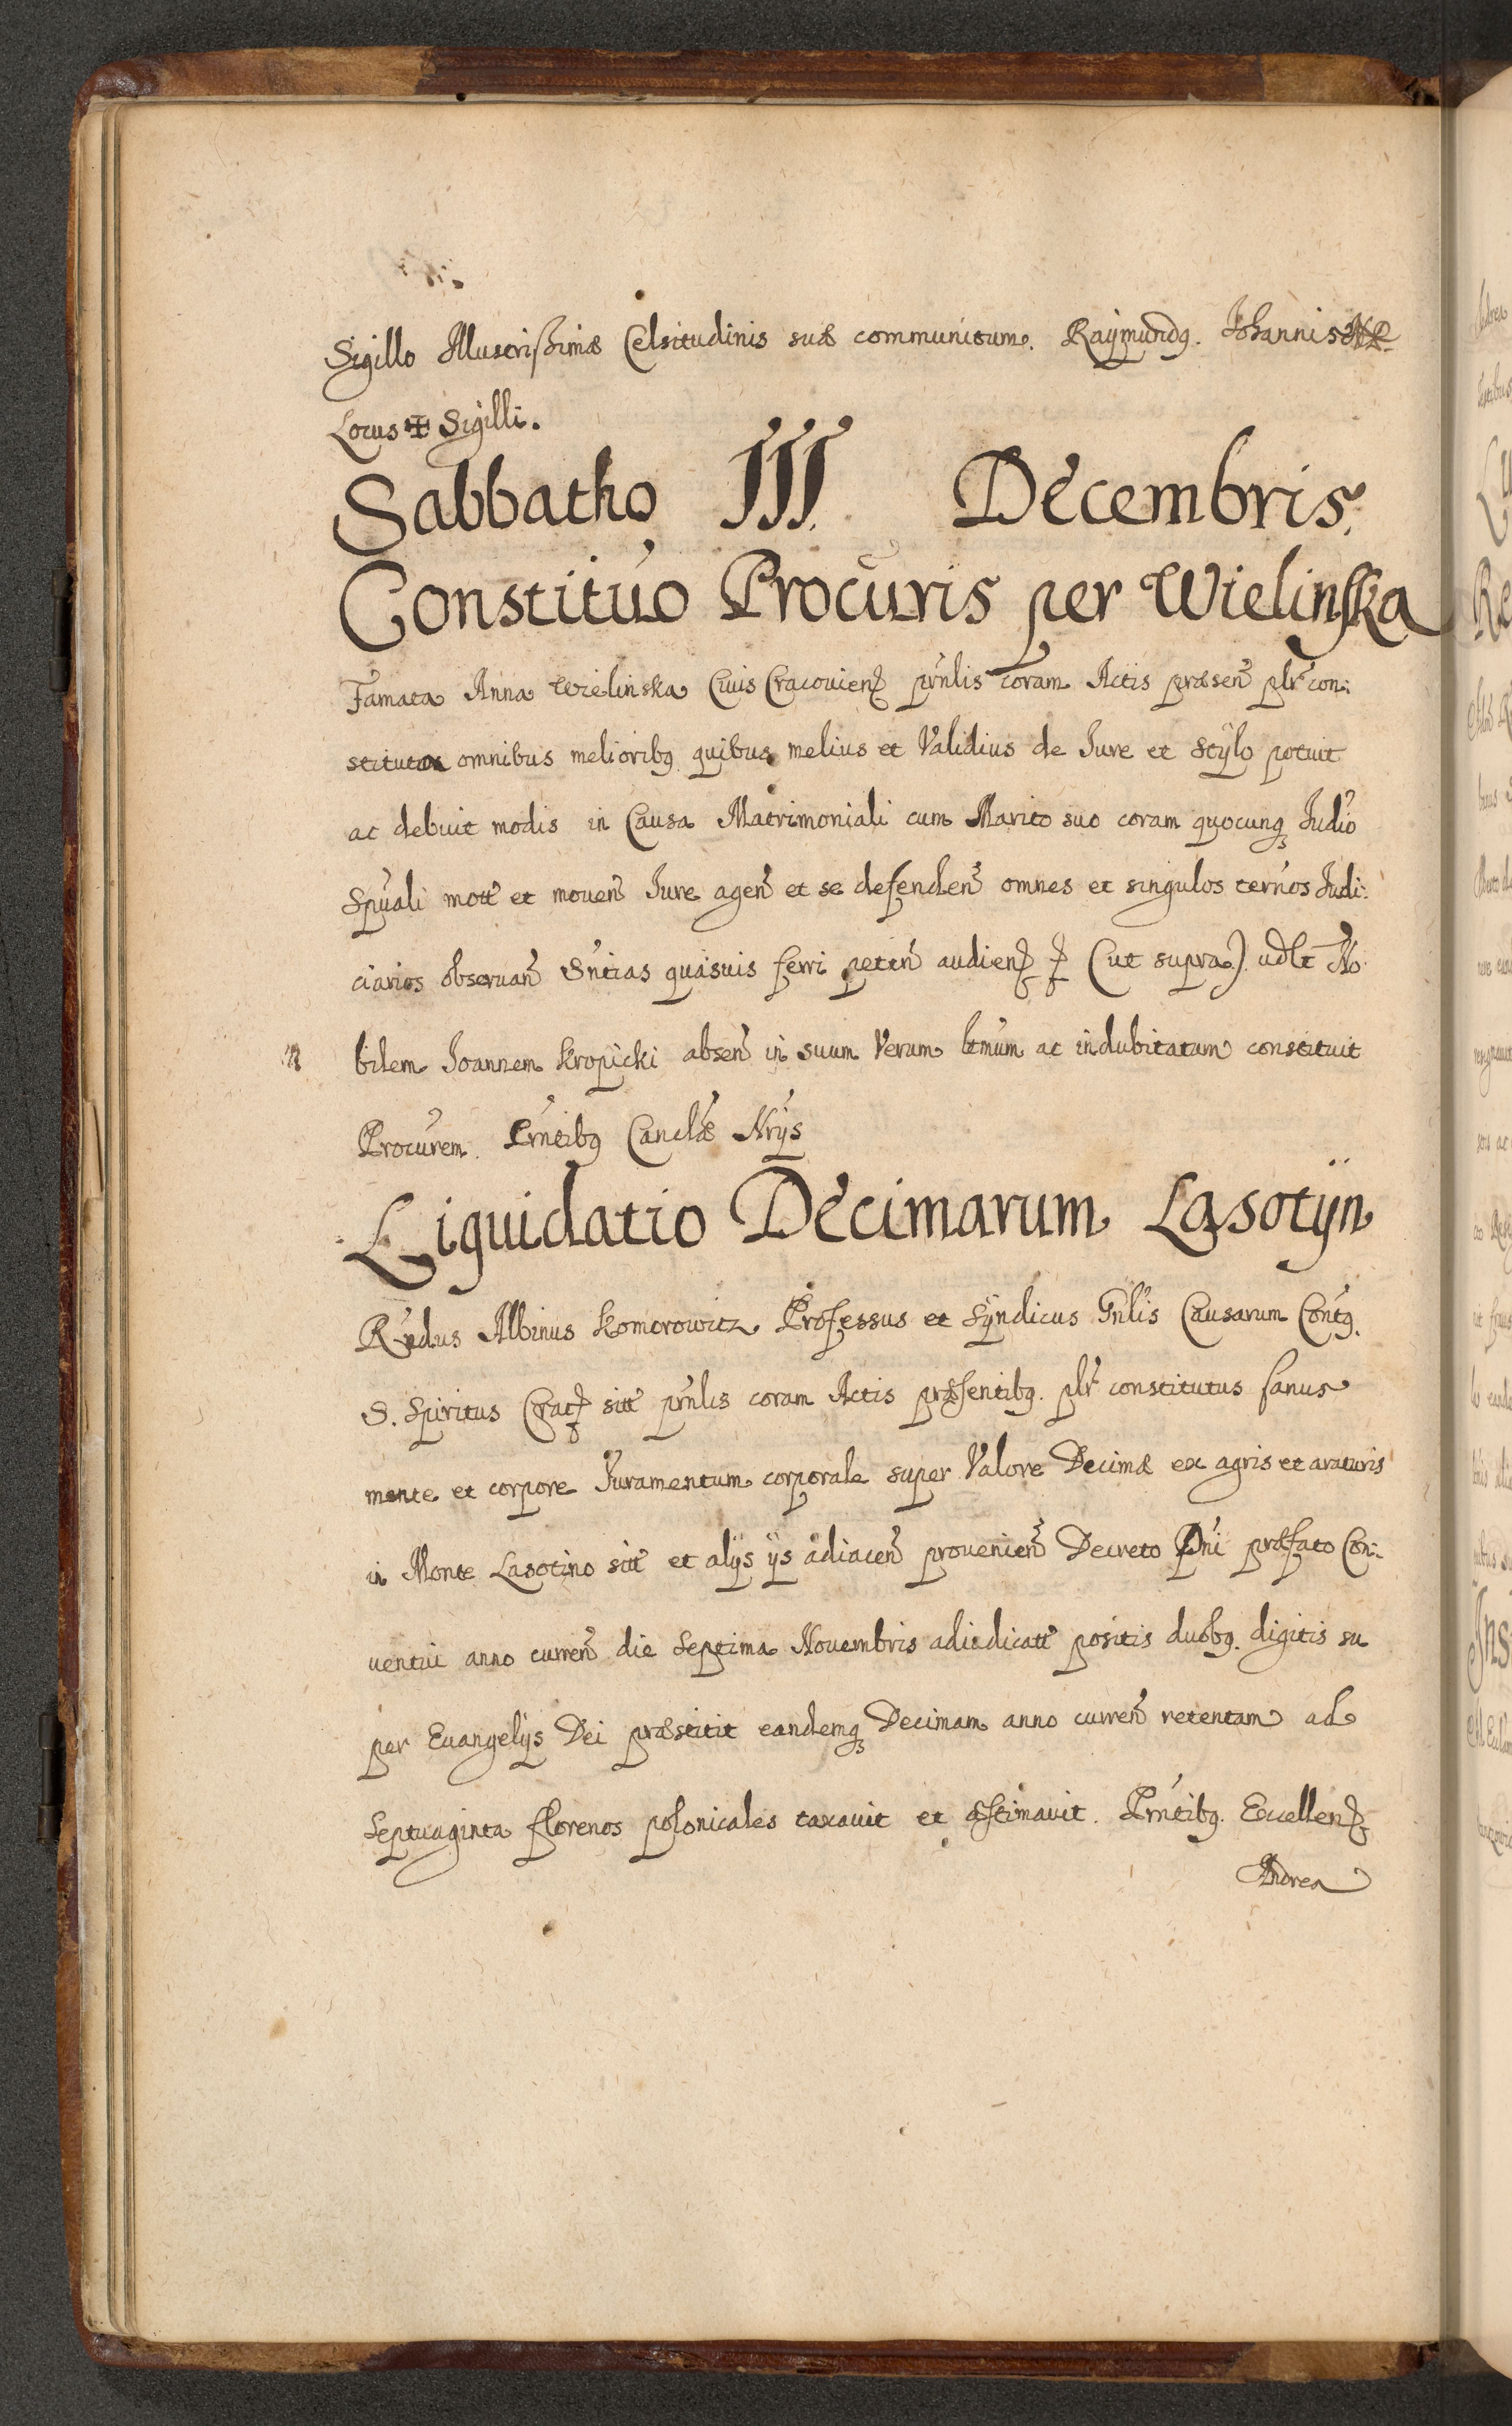 Sigillo Illustrißimæ Celsitudinis suæ communitum. Raÿmundq. Iohannis
Locus ✠ Sigilli.
Sabbatho III Decembris.
Constituo Procuris per Wielinska
Famata Anna Wielinska Civis Cracovien prnlis coram Actis præsen plr con:
stituta omnibus melioribq quibus melius et Validius de Iure et Stÿlo potuit
ac debuit modis in Causa Matrimoniali cum Marito suo coram quocunq Iudio
Spuali mott et mouen Iure agen et se defenden omnes et singulos ternos Iudi:
ciarios obseruan Sntias quasuis ferri peten audien (ut supra). udlt No
bilem Joannem Kropicki absen in suum Verum ltmum ac indubitatum constituit
Procurem. Prntibq Canclæ Nrÿs
Liquidatio Decimarum Lasotÿn
Rndus Albinus Komorowitz Professus et Sÿndicus Gnlis Causarum Contq.
S. Spiritus Crac sitt prnlis coram Actis præsentibq. plr constitutus sanus
mente et corpore Iuramentum corporale super Valore Decimæ ex agris et araturis
in Monte Lasotino sitt et alÿs ÿs adiacen prouenien Decreto Dni præfato Con:
uentui anno curren die Septima Nouembris adiudicatt positis duobq. digitis su
per Euangelÿs Dei præstitit eandemq Decimam anno curren retentam ad
Septuaginta florenos polonicales taxauit et æstimauit. Prntibq. Excellen
Andrea